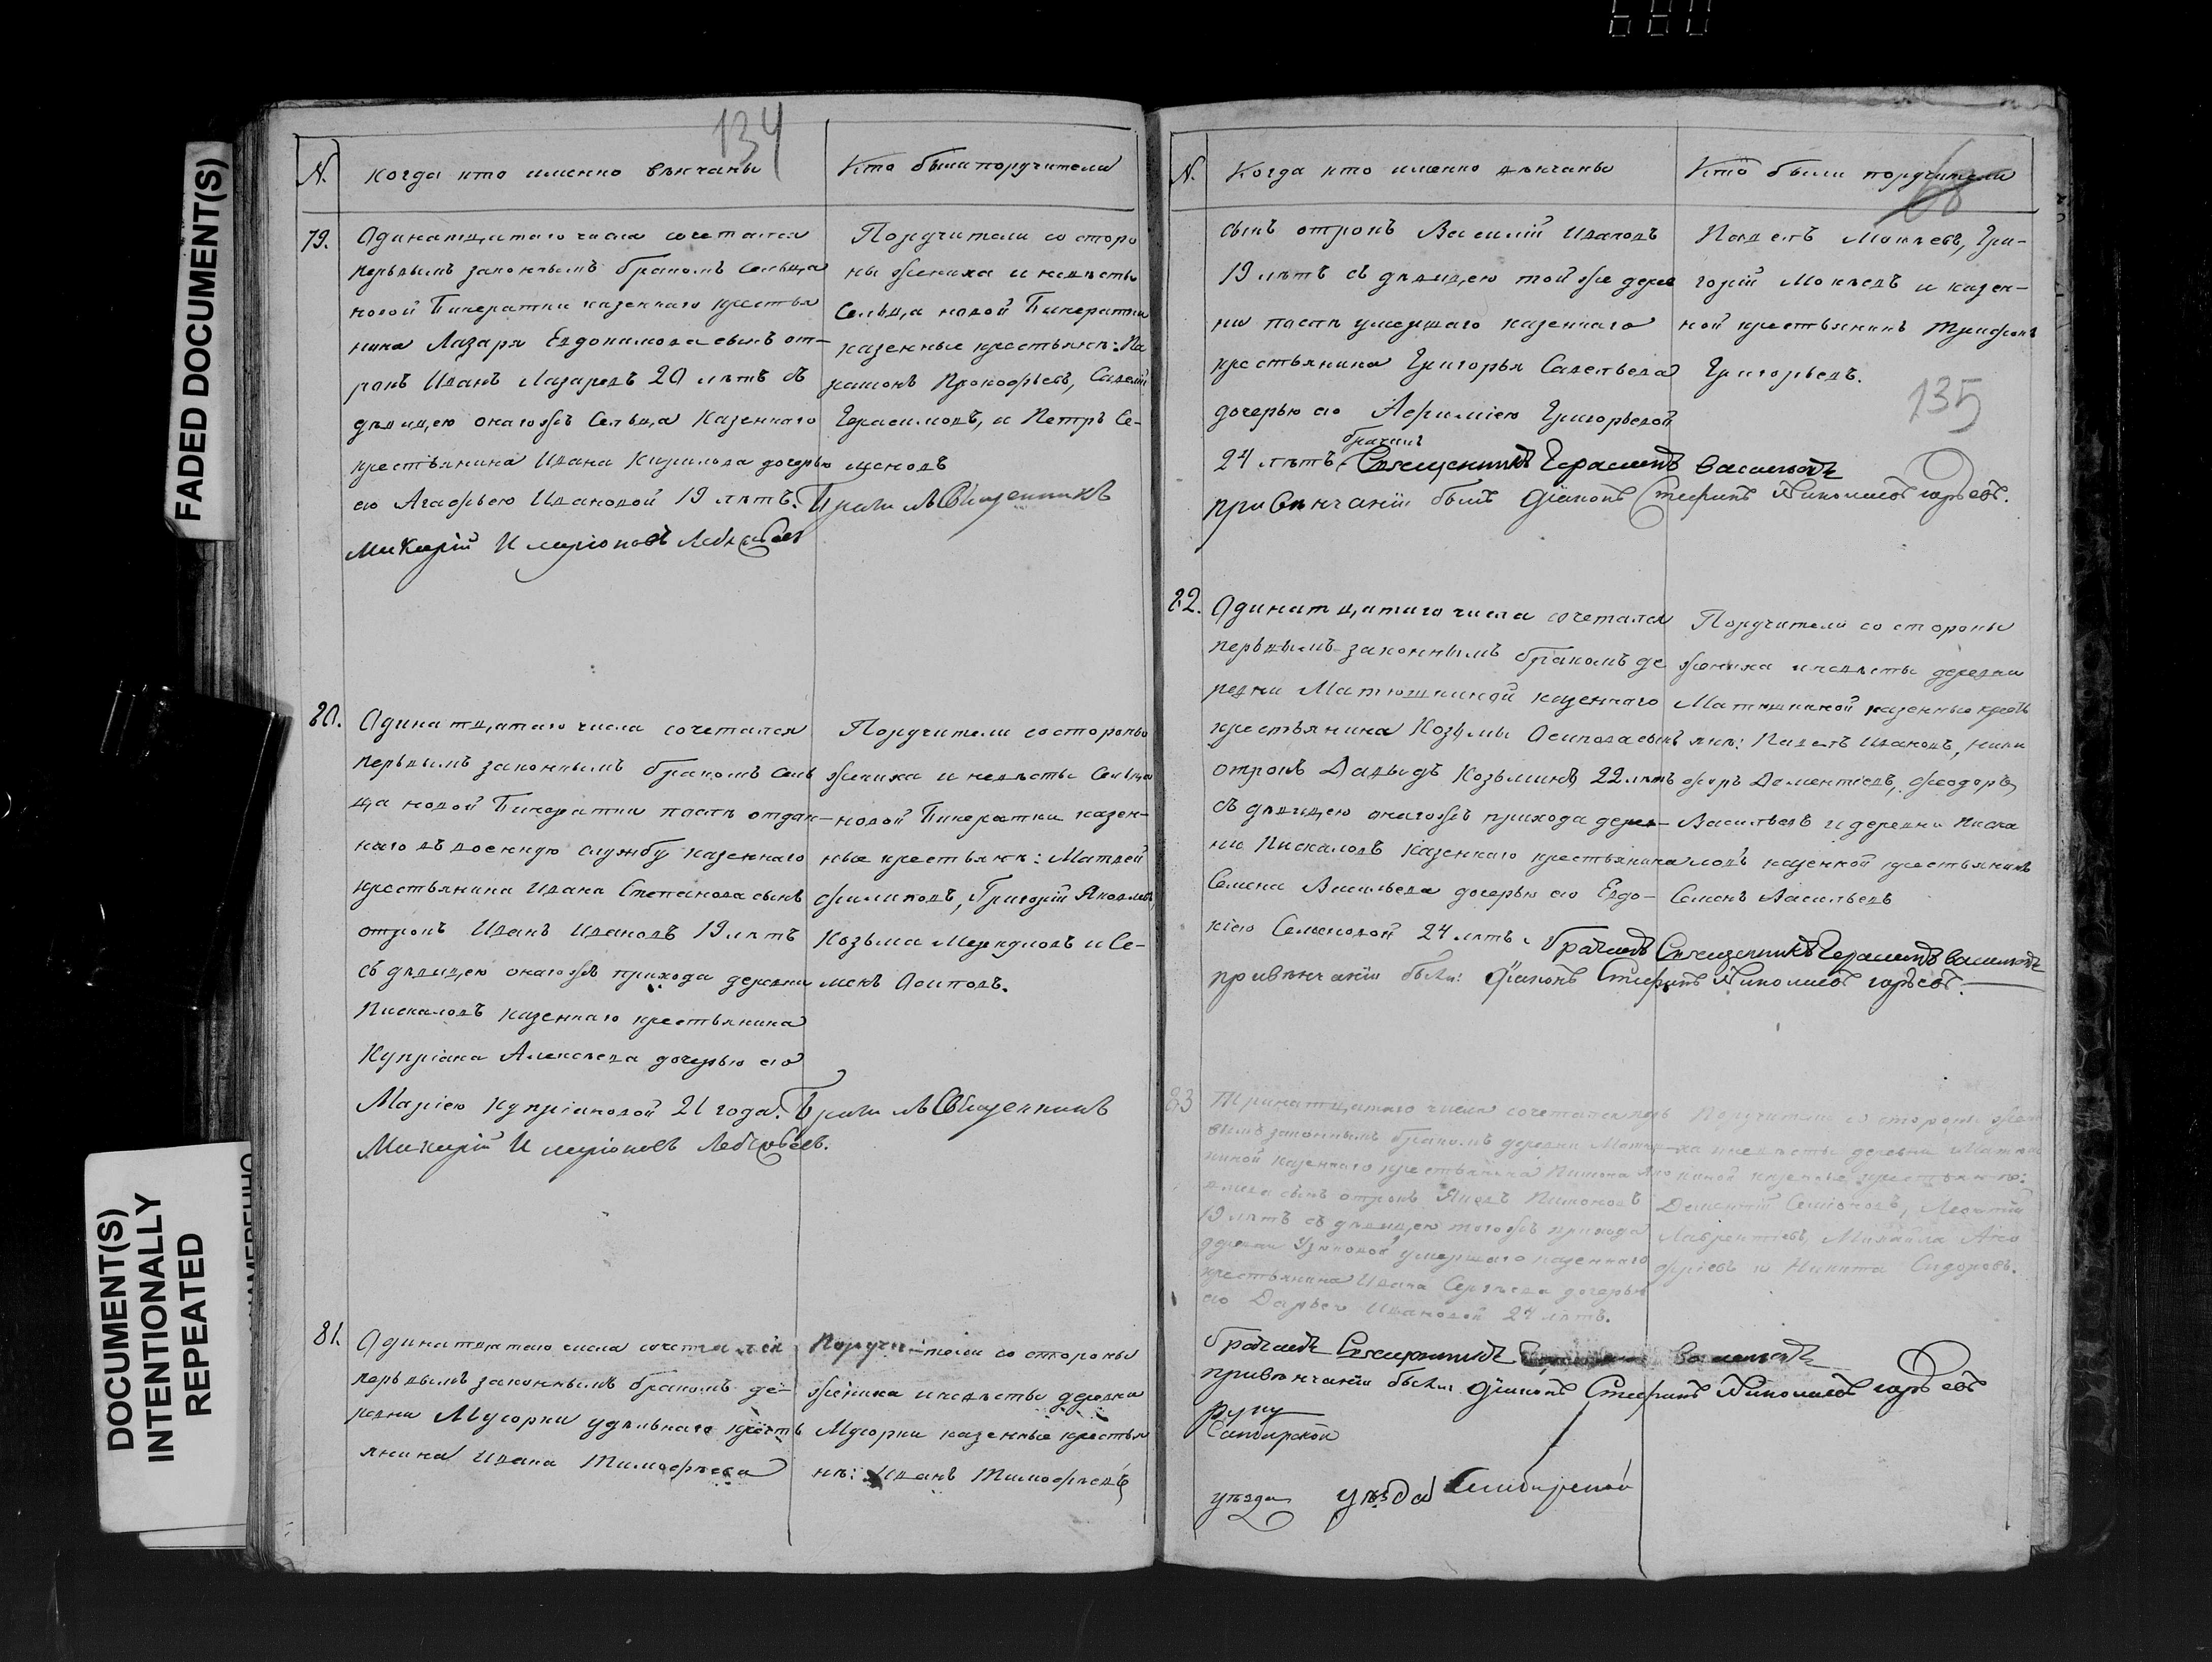 134
N. Когда кто именно вѣнчаны
Кто были поручители
79. Одинатцатаго числа сочетался
первымъ законнымъ бракомъ сельца
новой Бекератки казеннаго крестья
нина Лазаря Евдокимова сынъ от-
рокъ Иванъ Лазаревъ 20 лѣтъ съ
дѣвицею онагожъ сельца казеннаго
крестьянина Ивана Кирилова дочерью
его Агафьею Ивановой 19 лѣтъ. Бракъ Священникъ
Поручители со сторо
ны жениха и невѣсты
сельца новой Бекератки
казенные крестьянѣ: Па
рамонъ Прокофьевъ, Савелій
Герасимовъ, и Петръ Се-
меновъ
80. Одинатцатаго числа сочетался
первымъ законнымъ бракомъ сель
ца новой Бекератки послѣ отдан-
наго въ военную службу казеннаго
крестьянина Ивана Степанова сынъ
отрокъ Иванъ Ивановъ 19 лѣтъ
съ дѣвицею онагожъ прихода деревни
Пискаловъ казеннаго крестьянина
Купріана Алексѣева дочерью его
Маріею Купріановой 21 года. Священникъ
Поручители со стороны
жениха и невѣсты сельца
новой Бекератки казен-
ные крестьянѣ: Матвей
Филиповъ, Григорій Яковлевъ,
Козьма Меркуловъ и Се-
менъ Осиповъ.
81. Одинатцатаго числа сочетался
первымъ законнымъ бракомъ де-
ревни Мусорки удѣльнаго кресть
янина Ивана Тимофѣева
Поручители со стороны
жениха и невѣсты деревни
Мусорки казенные крестья
нѣ: Иванъ Тимофѣевъ
N. Когда кто именно вѣнчаны
Кто были поручители
68
сынъ отрокъ Василій Ивановъ
19 лѣтъ съ дѣвицею той же дерев
ни послѣ умершаго казеннаго
крестьянина Григорья Савельева
дочерью его Григорьевой
24 лѣтъ. Священникъ Герасимъ Васильевъ
при вѣнчаніи былъ Діаконъ Стефанъ Николаевъ
Павелъ Мокѣевъ, Гри-
горій Мокѣевъ и казен-
ной крестьянинъ Трифонъ
Григорьевъ.
135
82. Одинатцатаго числа сочетался
первымъ законнымъ бракомъ де
ревни Матюшкиной казеннаго
крестьянина Козьмы Осипова сынъ
отрокъ Давыдъ Козьминъ 22 лѣтъ
съ дѣвицею онагожъ прихода дерев-
ни Пискаловъ казеннаго крестьянина
Семена Васильева дочерью его Евдо-
кіею Семеновой 24 лѣтъ. Священникъ Герасимъ Васильевъ
при вѣнчаніи были: Діаконъ Стефанъ Николаевъ
Поручители со стороны
жениха и невѣсты деревни
Матюшкиной казенные кресть
янѣ: Павелъ Ивановъ, Ники
форъ Дементіевъ, Феодоръ
Васильевъ и деревни Писка
ловъ казенной крестьянинъ
Семенъ Васильевъ
83 Тринатцатаго числа сочетался пер
вымъ законнымъ бракомъ деревни Матюш-
киной казеннаго крестьянина
сынъ отрокъ Яковъ
19 лѣтъ съ дѣвицею тогожъ прихода
деревни умершаго казеннаго
крестьянина Ивана Сергѣева дочерью
его Дарьею Ивановой 24 лѣтъ.
Поручители со стороны жени
ха и невѣсты деревни Матюш
киной казенные крестьянѣ:
Дементій Леонтій
Лаврентіевъ, Михайла
и Никита Сидоровъ.
Священникъ
при вѣнчаніи были Діаконъ Стефанъ Николаевъ
руку
Симбирской
уѣзда уѣзда Симбирской
FADED DOCUMENT(S)
DOCUMENT(S)
INTENTIONALLY
REPEATED